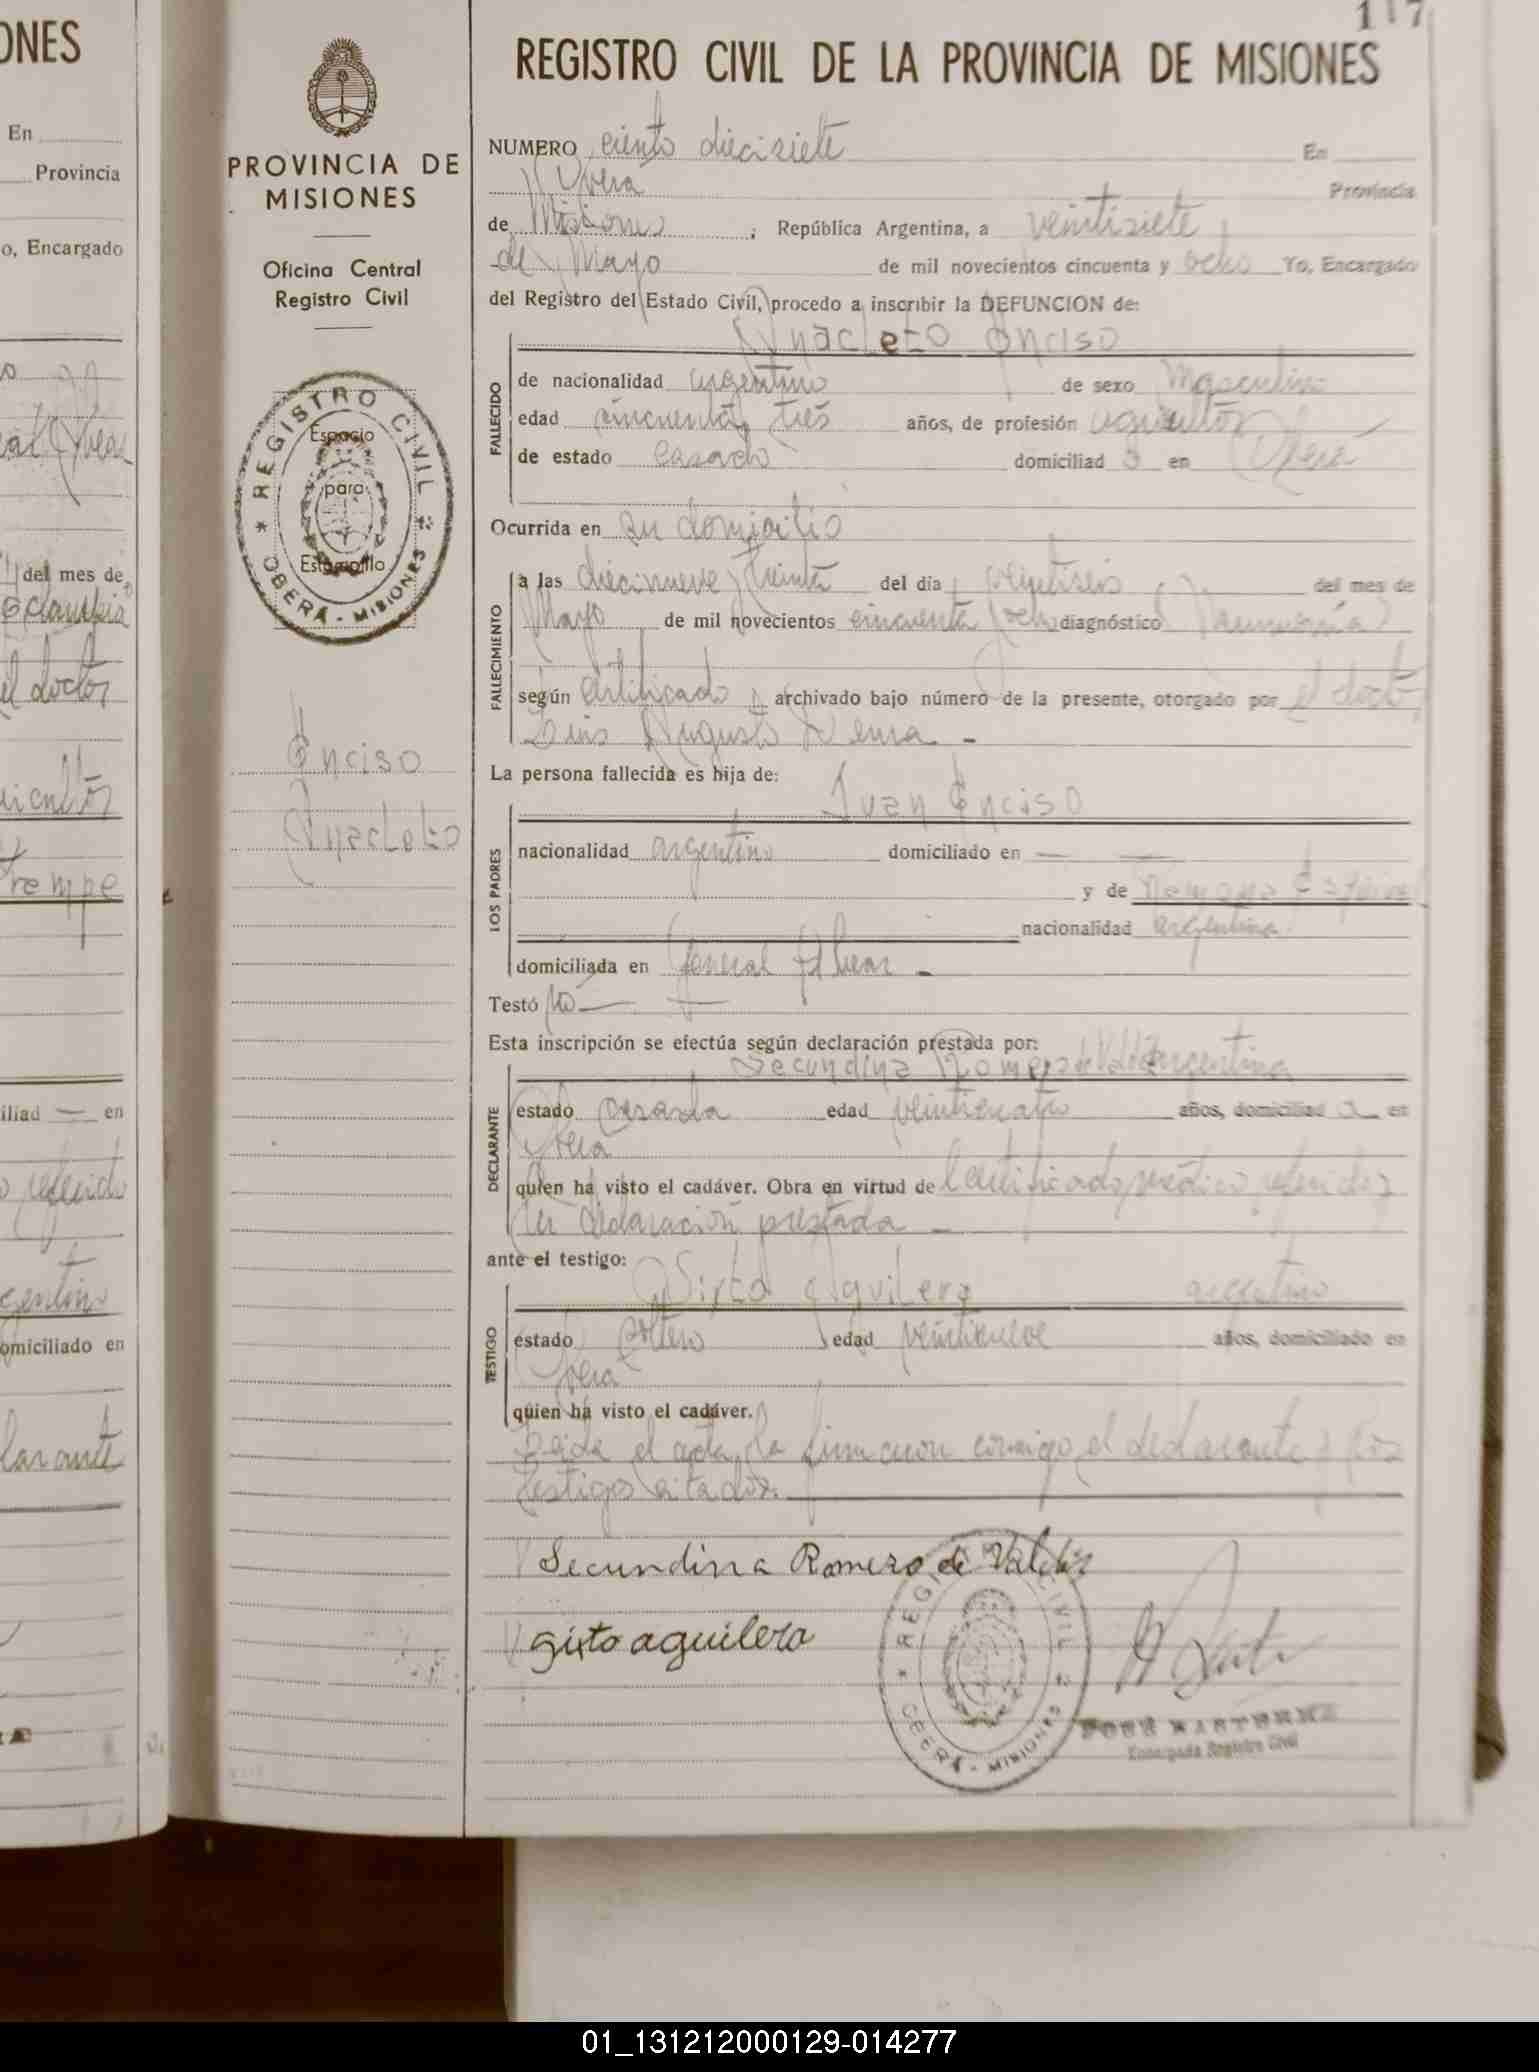 ONES
En
Provincia
o, Encargado
del mes de
el doctor
rempe
iliad — en
referido
gentino
omiciliado en
larante
PROVINCIA DE
MISIONES
Oficina Central
Registro Civil
REGISTRO CIVIL
OBERÁ - MISIONES
Espacio
para
Estampilla
Enciso
Anacleto
117
REGISTRO CIVIL DE LA PROVINCIA DE MISIONES
NUMERO ciento diecisiete En
Obera Provincia
de Misiones ; República Argentina, a veintisiete
de Mayo de mil novecientos cincuenta y ocho Yo, Encargado
del Registro del Estado Civil, procedo a inscribir la DEFUNCION de:
Anacleto Enciso
FALLECIDO
de nacionalidad argentino de sexo Masculino
edad cincuenta y tres años, de profesión agricultor
de estado casado domiciliad o en Oberá
Ocurrida en su domicilio
FALLECIMIENTO
a las diecinueve y treinta del dia veintiseis del mes de
Mayo de mil novecientos cincuenta y ocho diagnóstico
según certificado archivado bajo número de la presente, otorgado por el doctor
Luis Augusto
La persona fallecida es hija de:
Juan Enciso
LOS PADRES
nacionalidad argentino domiciliado en — —
y de Ramona
nacionalidad argentina
domiciliada en General Alvear -
Testó No — —
Esta inscripción se efectúa según declaración prestada por:
Secundina Romero de Valdez argentina
DECLARANTE
estado casada edad veinticuatro años, domiciliad a en
Obera
quien ha visto el cadáver. Obra en virtud de certificado médico referido y
su declaración prestada -
ante el testigo:
Sixto Aguilera argentino
TESTIGO
estado soltero edad veintinueve años, domiciliado en
Obera
quien ha visto el cadáver.
Leida el acta, la firmaron conmigo el declarante y los
testigos citados.
Secundina Romero de Valdez
Sixto aguilera
REGISTRO CIVIL
OBERÁ - MISIONES
JOSÉ
Encargado Registro Civil
01_131212000129-014277